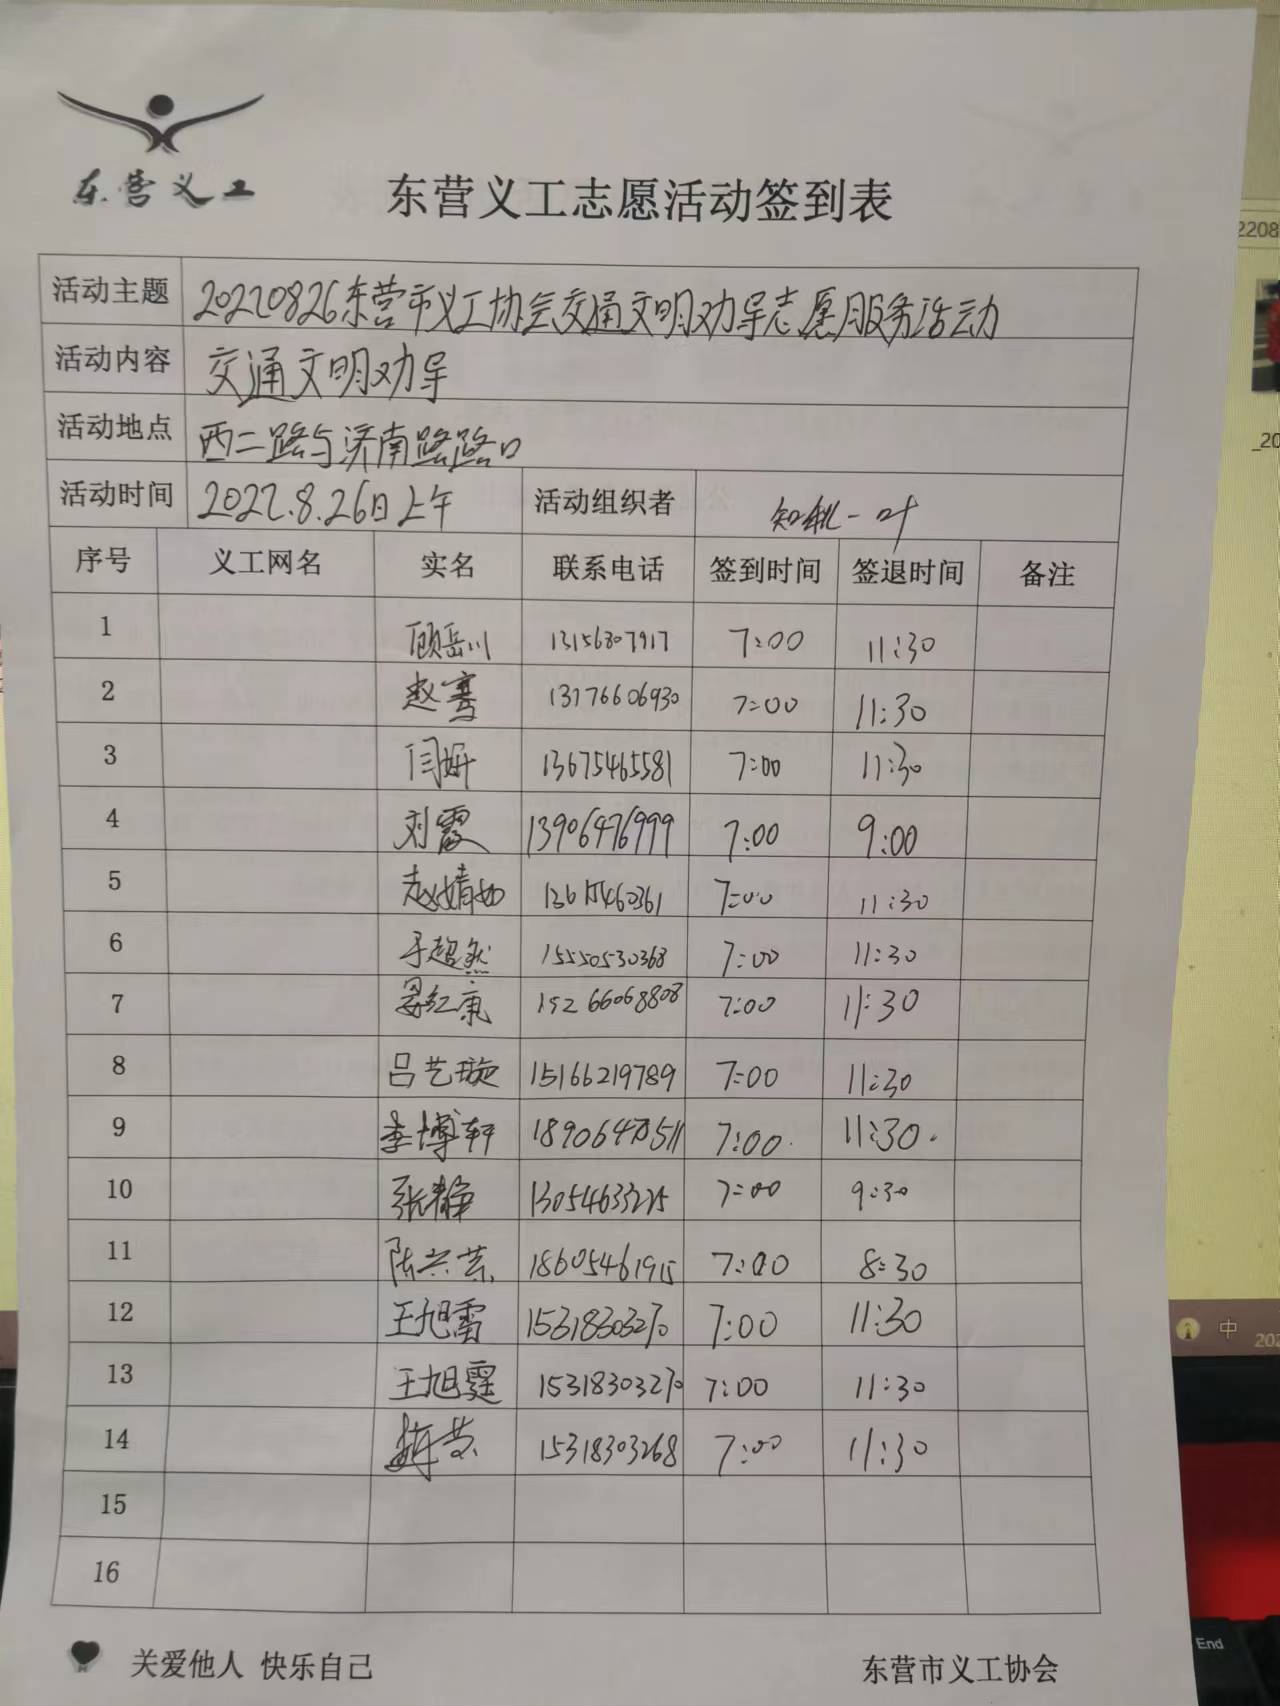 东营义工
东营义工志愿活动签到表
活动主题 20220826东营市义工协会交通文明劝导志愿服务活动
活动内容 交通文明劝导
活动地点 西二路与济南路路口
活动时间 2022.8.26日上午 活动组织者 知秋一叶
序号 义工网名 实名 联系电话 签到时间 签退时间 备注
1 顾岳川 13156807917 7:00 11:30
2 赵骞 13176606930 7:00 11:30
3 闫妍 13675465581 7:00 11:30
4 刘霞 13906476999 7:00 9:00
5 赵婧如 7:00 11:30
6 于超然 15550530368 7:00 11:30
7 晏红康 15266068808 7:00 11:30
8 吕艺璇 15166219789 7:00 11:30
9 李博轩 7:00 11:30
10 张静 13054633275 7:00 9:30
11 陈兴荣 18605461915 7:00 8:30
12 王旭雷 15318303270 7:00 11:30
13 王旭霆 15318303270 7:00 11:30
14 15318303268 7:00 11:30
15
16
关爱他人 快乐自己 东营市义工协会
2208
_20
中
202
End